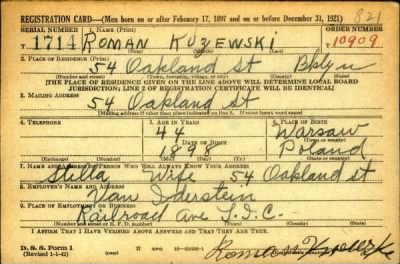 REGISTRATION CARD—(Men born on or after February 17, 1897 and on or before December 31, 1921) 821
SERIAL NUMBER 1. NAME (Print) ORDER NUMBER
1714 ROMAN KUZEWSKI 10909
2. PLACE OF RESIDENCE (Print)
54 Oakland St Bklyn
(Number and street) (Town, township, village, or city) (County) (State)
[THE PLACE OF RESIDENCE GIVEN ON THE LINE ABOVE WILL DETERMINE LOCAL BOARD
JURISDICTION; LINE 2 OF REGISTRATION CERTIFICATE WILL BE IDENTICAL]
3. MAILING ADDRESS
54 Oakland St
[Mailing address if other than place indicated on line 2. If same insert word same]
4. TELEPHONE 5. AGE IN YEARS 6. PLACE OF BIRTH
44 Warsaw
DATE OF BIRTH (Town or county)
1898 Poland
(Exchange) (Number) (Mo.) (Day) (Yr.) (State or country)
7. NAME AND ADDRESS OF PERSON WHO WILL ALWAYS KNOW YOUR ADDRESS
Stella Wife 54 Oakland st
8. EMPLOYER'S NAME AND ADDRESS
Van Iderstein
9. PLACE OF EMPLOYMENT OR BUSINESS
Railroad Ave L.I.C.
(Number and street or R. F. D. number) (Town) (County) (State)
I AFFIRM THAT I HAVE VERIFIED ABOVE ANSWERS AND THAT THEY ARE TRUE.
D. S. S. Form 1
(Revised 1-1-42) (over)
Roman